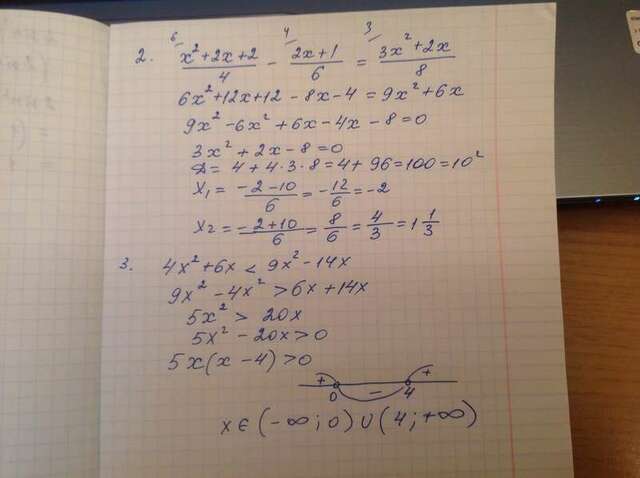 2. (x² + 2x + 2)/4 ⁶ - (2x + 1)/6 ⁴ = (3x² + 2x)/8 ³
6x² + 12x + 12 - 8x - 4 = 9x² + 6x
9x² - 6x² + 6x - 4x - 8 = 0
3x² + 2x - 8 = 0
D = 4 + 4·3·8 = 4 + 96 = 100 = 10²
x₁ = (-2 - 10)/6 = -12/6 = -2
x₂ = (-2 + 10)/6 = 8/6 = 4/3 = 1 1/3
3. 4x² + 6x < 9x² - 14x
9x² - 4x² > 6x + 14x
5x² > 20x
5x² - 20x > 0
5x(x - 4) > 0
+ - +
0 4
x ∈ (-∞; 0) ∪ (4; +∞)